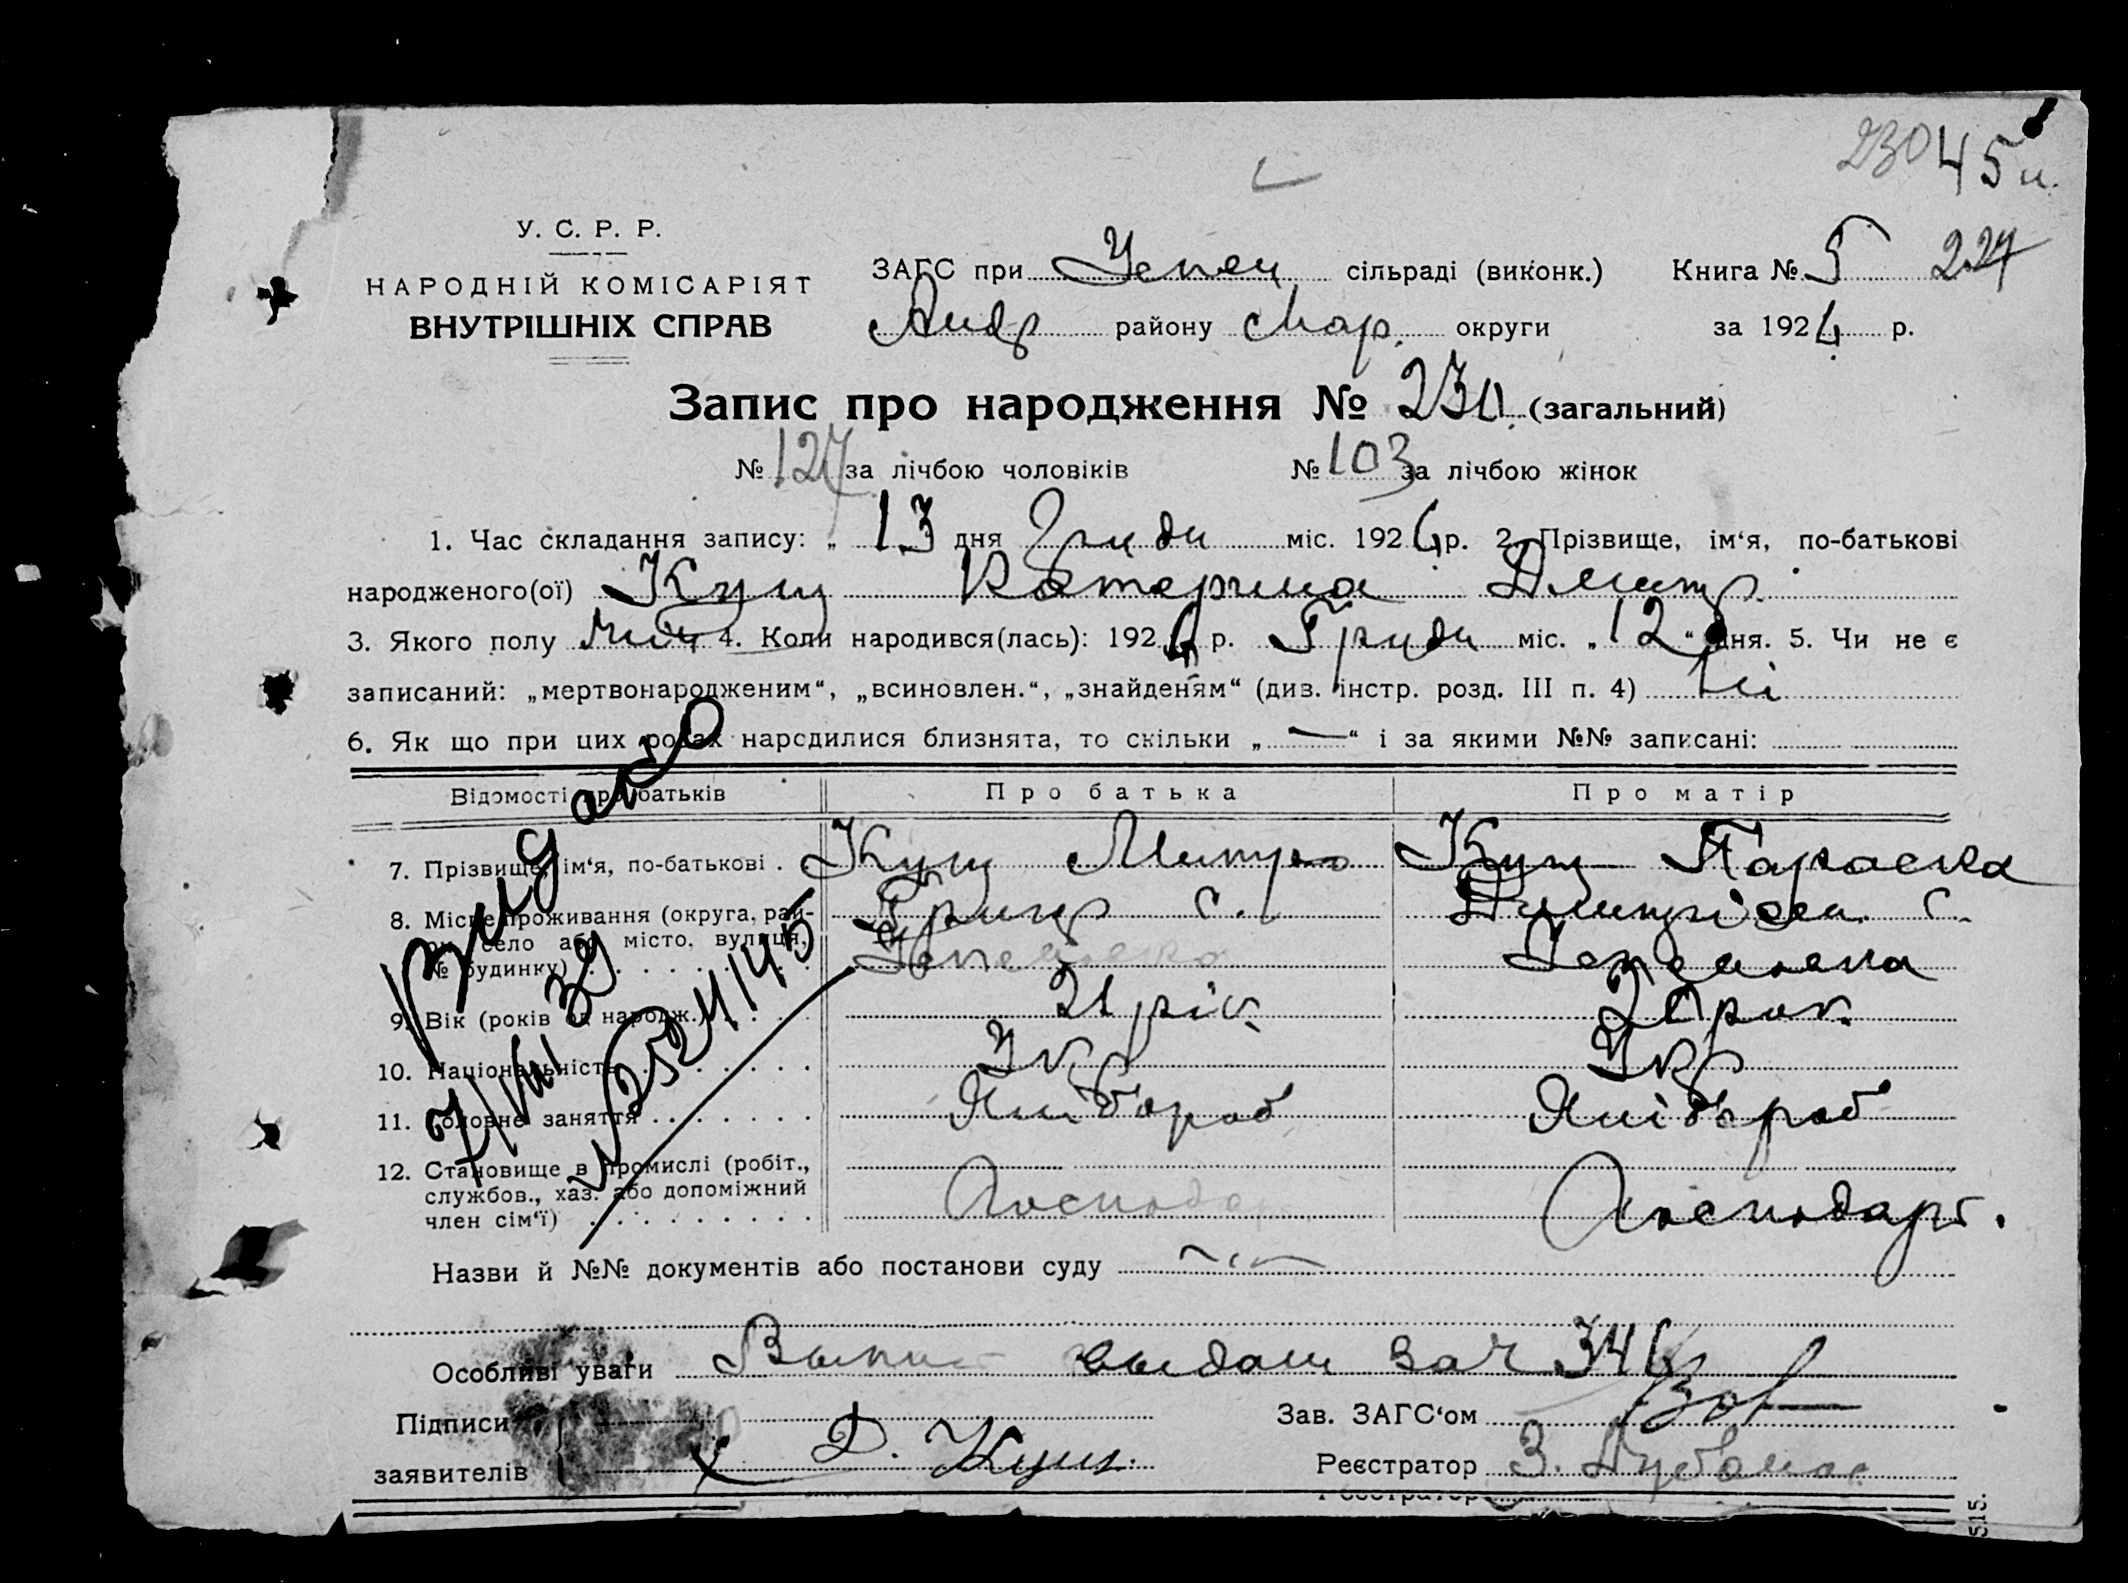 230 45
У. С. Р. Р.
НАРОДНІЙ КОМІСАРІЯТ
ВНУТРІШНІХ СПРАВ
ЗАГС при Успен сільраді (виконк.) Книга № 5 227
Андр району Мар. округи за 1926 р.
Запис про народження № 230 (загальний)
№ 127 за лічбою чоловіків № 103 за лічбою жінок
1. Час складання запису: „ 13 дня Груди міс. 1926 р. 2. Прізвище, ім‘я, по-батькові
народженого(ої) Кущ Катерина Дмитр.
3. Якого полу жін 4. Коли народився(лась): 1926 р. Груди міс. „ 12 “ дня. 5. Чи не є
записаний: „мертвонародженим“, „всиновлен.“, „знайденям“ (див. інстр. розд. III п. 4) ні
6. Як що при цих родах народилися близнята, то скільки „ — “ і за якими №№ записані:
Відомості про батьків Про батька Про матір
7. Прізвище, ім‘я, по-батькові . Кущ Митро Кущ Параска
8. Місце проживання (округа, рай-
он, село або місто, вулиця,
№ будинку) Грицр с. Успенівка Дмитрівн. с. Успенівка
9. Вік (років од народж.) 21 рік 20 рок.
10. Національність Укр Укр
11. Головне заняття Хлібороб Хлібороб
12. Становище в промислі (робіт.,
службов., хаз. або допоміжний
член сім‘ї) Господар Господарь.
Видано
7/VIII 39
№ 2524145
Назви й №№ документів або постанови суду
Особливі уваги Выпис выдан за ч 346
Підписи
заявителів Д. Кущ.
Зав. ЗАГС‘ом
Реєстратор З.
515.